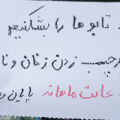 تابوها را بشکنیم
برچسب زدن زنان و
عادت ماهانه پایان